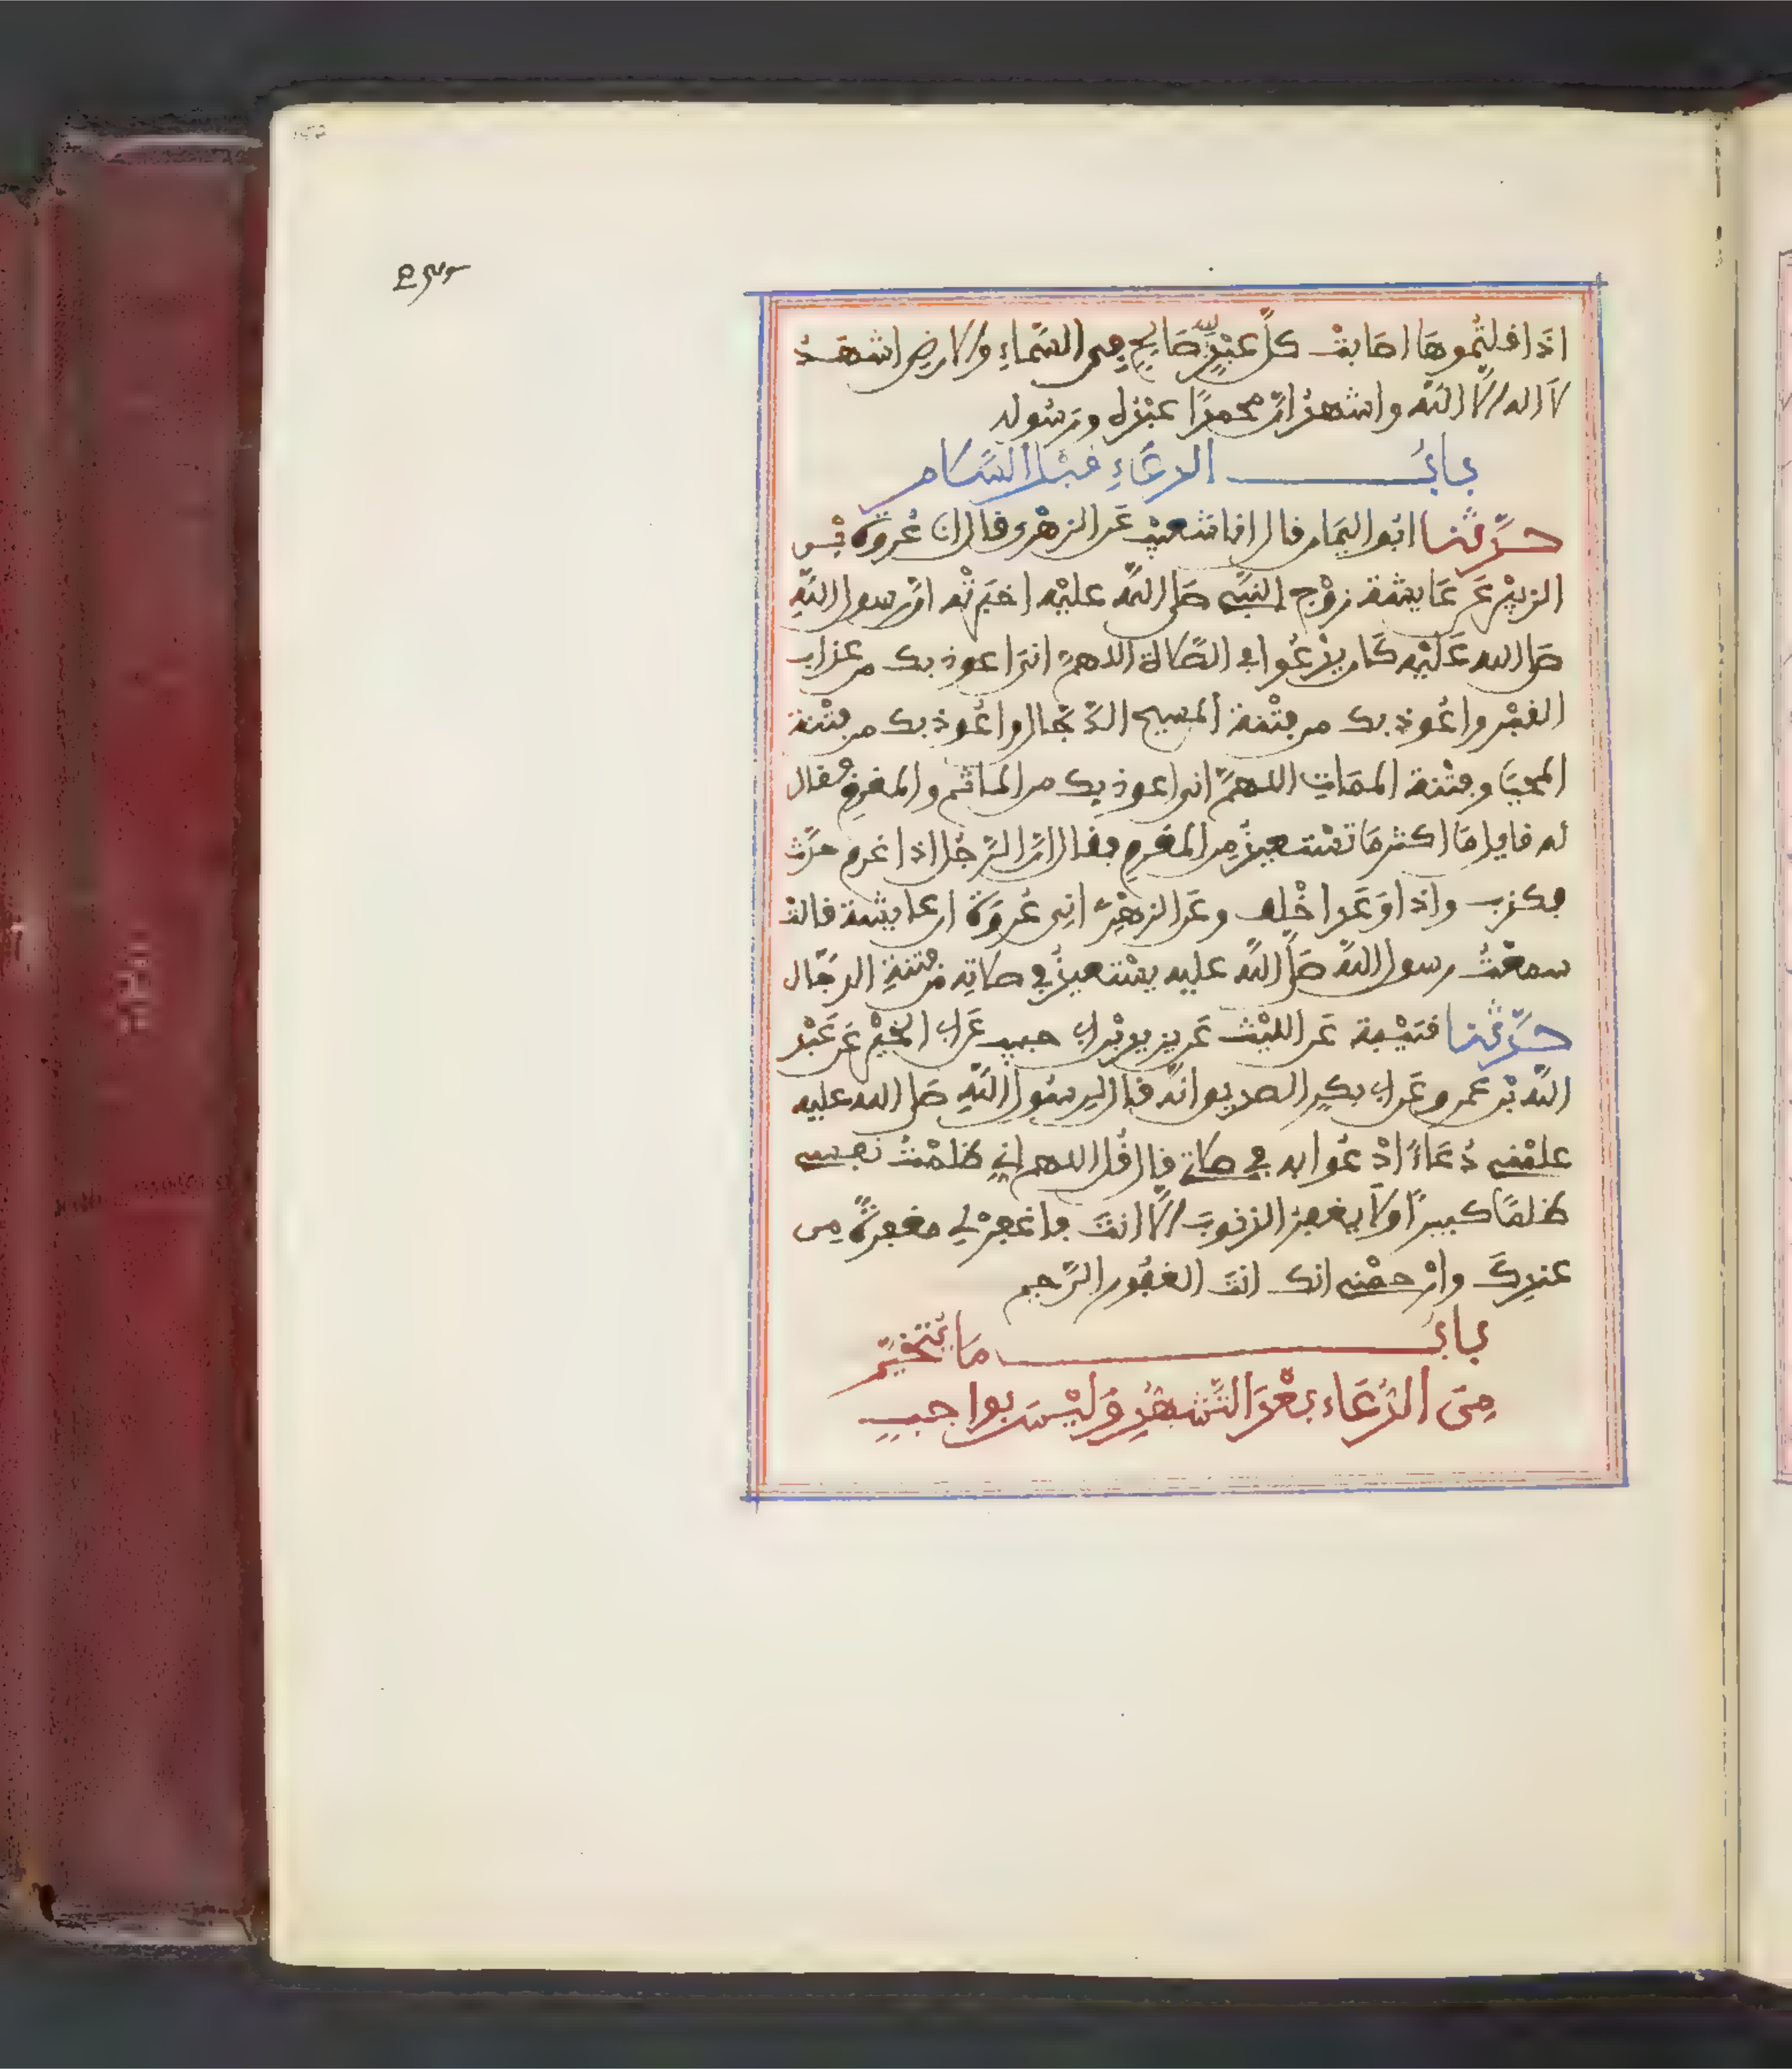 اذا قلتموها اصابت كل عبد لله صالح في السماء والارض اشهد
لا اله الا الله واشهد ان محمدا عبده ورسوله
باب الدعاء قبل السلام
حدثنا ابو اليمان قال انا شعيب عن الزهري قال انا عروة بن
الزبير عن عايشة زوج النبي صلى الله عليه اخبرته ان رسول الله
صلى الله عليه كان يدعوا في الصلاة اللهم اني اعوذ بك من عذاب
القبر واعوذ بك من فتنة المسيح الدجال واعوذ بك من فتنة
المحيا وفتنة الممات اللهم اني اعوذ بك من الماثم والمغرم فقال
له قايل ما اكثر ما تستعيذ من المغرم فقال ان الرجل اذا غرم حدث
فكذب واذا وعد اخلف وعن الزهري اني عروة ان عايشة قالت
سمعت رسول الله صلى الله عليه يستعيذ في صلاته من فتنة الدجال
حدثنا قتيبة عن الليث عن يزيد بن ابي حبيب عن ابي الخير عن عبد
الله بن عمرو عن ابي بكر الصديق انه قال لرسول الله صلى الله عليه
علمني دعاء ادعوا به في صلاتي قال قل اللهم اني ظلمت نفسي
ظلما كبيرا ولا يغفر الذنوب الا انت فاغفر لي مغفرة من
عندك وارحمني انك انت الغفور الرحيم
باب ما يتخير
من الدعاء بعد التشهد وليس بواجب